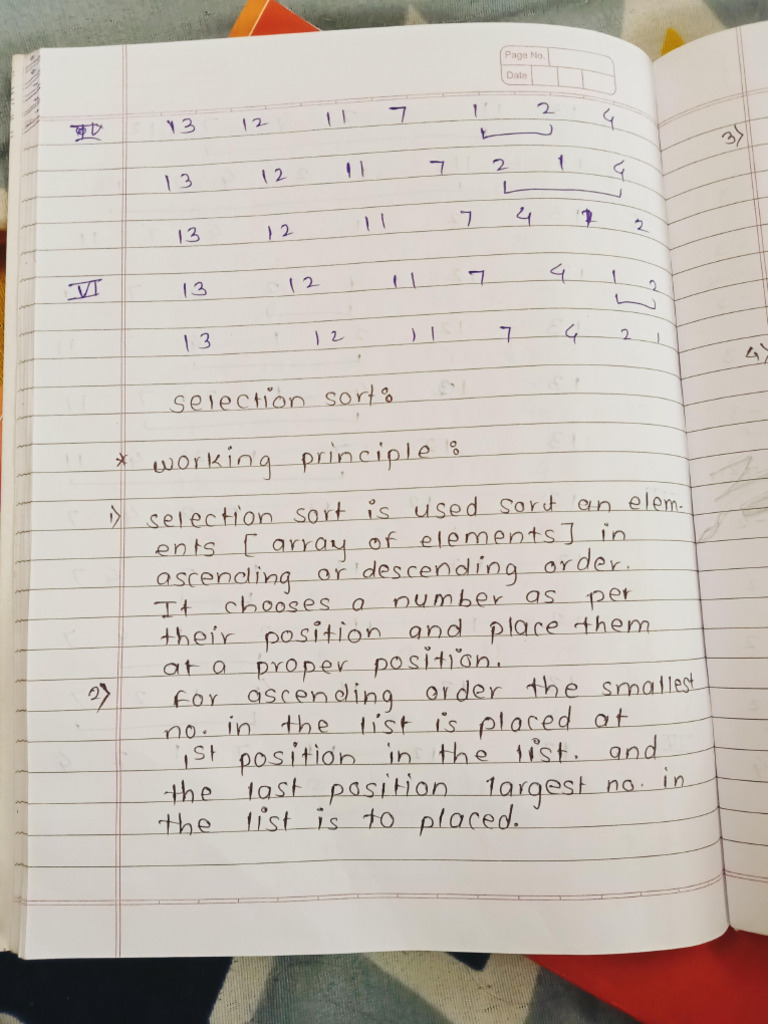 Page No.
Date
IV 13 12 11 7 1 2 4
13 12 11 7 2 1 4
13 12 11 7 4 1 2
VI 13 12 11 7 4 1 2
13 12 11 7 4 2 1
selection sort:
* working principle:
1) selection sort is used sort an elem-
ents [array of elements] in
ascending or descending order.
It chooses a number as per
their position and place them
at a proper position.
2) for ascending order the smallest
no. in the list is placed at
1st position in the list. and
the last position largest no. in
the list is to placed.
3)
4)